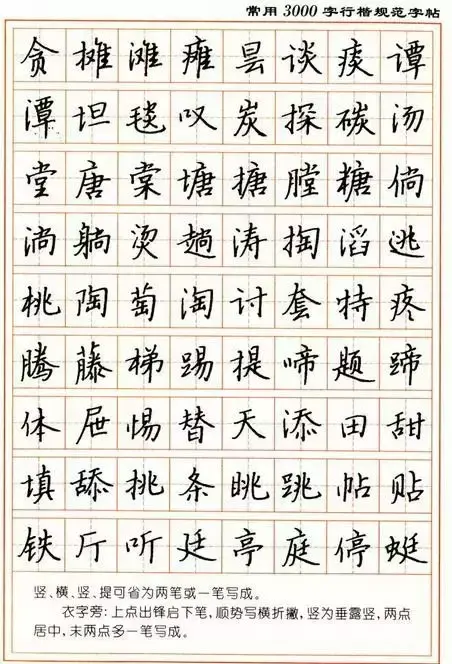 常用3000字行楷规范字帖
贪摊滩瘫昙谈痰谭
潭坦毯叹炭探碳汤
堂唐棠塘搪膛糖倘
淌躺烫趟涛掏滔逃
桃陶萄淘讨套特疼
腾藤梯踢提啼题蹄
体屉惕替天添田甜
填舔挑条眺跳帖贴
铁厅听廷亭庭停蜓
竖、横、竖、提可省为两笔或一笔写成。
衣字旁:上点出锋启下笔,顺势写横折撇,竖为垂露竖,两点
居中,末两点多一笔写成。